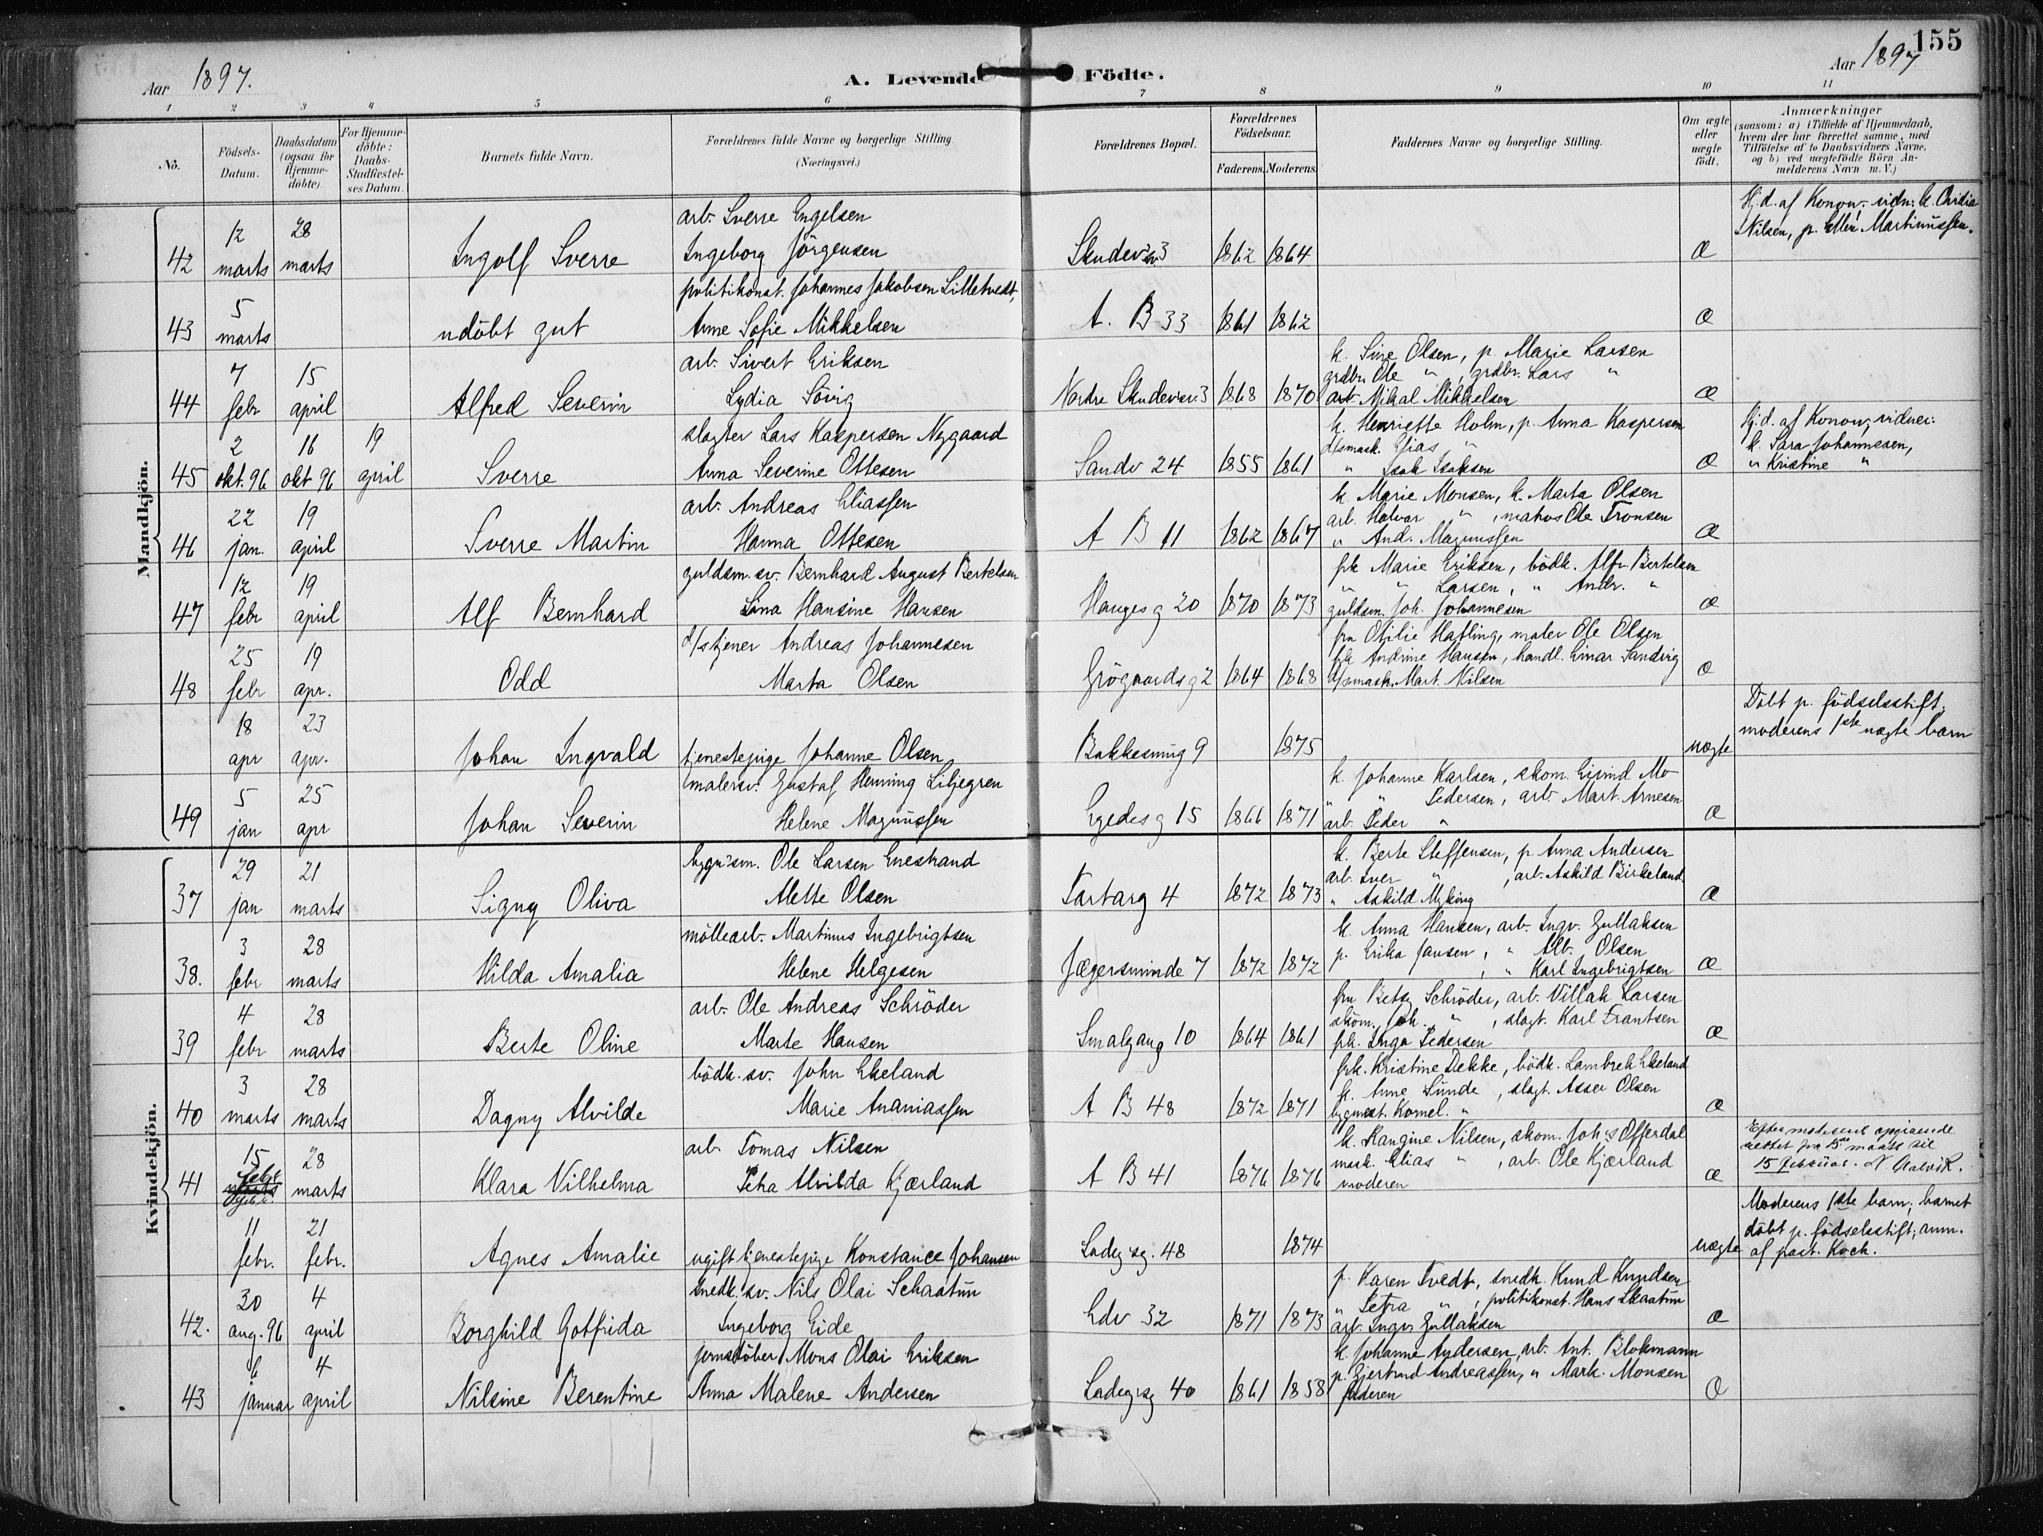 155
Aar 1897.
A. Levende Födte.
Aar 1897
1 2 3 4 5 6 7 8 9 10 11
No.
Födsels-Datum.
Daabsdatum (ogsaa for Hjemme-döbte).
For Hjemme-döbte: Daabs-Stadfæstel-ses Datum.
Barnets fulde Navn.
Forældrenes fulde Navne og borgerlige Stilling.
(Næringsvei.)
Forældrenes Bopæl.
Forældrenes Födselsaar.
Faderens. Moderens.
Faddernes Navne og borgerlige Stilling.
Om ægte eller uægte födt.
Anmærkninger
(saasom: a) i Tilfælde af Hjemmedaab,
hvem der har forrettet samme, med
Tilföielse af to Daabsvidners Navne,
og b) ved uægtefödte Börn An-
melderens Navn m. V.)
Mandkjön.
arb. Sverre Engelsen
Hj.d. af Konow. vidn: k. Ovidia
Nilsen, p. Ellen Martinussen.
42 12 marts 28 marts Ingolf Sverre Ingeborg Jörgensen Skudev 3 1862 1864 Æ
politikonst. Johannes Jakobsen Lilletvedt,
43 5 marts udöbt gut Anne Sofie Mikkelsen A. B 33 1861 1862 Æ
arb. Sivert Eriksen
k. Sine Olsen, p. Marie Larsen
grdbr. Ole " , grdbr. Lars "
44 7 febr 15 april Alfred Severin Lydia Sövig Nordre Skudeviken 3 1868 1870 arb. Mikal Mikkelsen Æ
slagter Lars Kaspersen Nygaard
k. Henriette Holm, p. Anna Kaspersen
d/smask. Elias "
Hj.d. af Konow, vidner:
k. Sara Johannesen,
" Kristine "
45 2 okt. 96 16 okt 96 19 april Sverre Anna Severine Ottesen Sandv 24 1855 1861 " Isak Isaksen Æ
arb. Andreas Eliassen
k. Marie Monsen, k. Marta Olsen
arb. Halvor " , matros Ole Tronsen
46 22 jan. 19 april Sverre Martin Hanna Ottesen A B 11 1862 1867 " And. Magnussen Æ
guldsm.sv. Bernhard August Bertelsen
frk Marie Eriksen, bödk. Alfr. Bertelsen
" " Larsen, " Andr. "
47 12 febr 19 april Alf Bernhard Lina Hansine Hansen Hauges g 20 1870 1873 guldsm. Joh. Johannesen Æ
d/stjener Andreas Johannesen
fru Otilie Hafling, maler Ole Olsen
frk Andrine Hansen, handl. Einar Sandvig
48 25 febr 19 apr. Odd Marta Olsen Grögaards g 2 1864 1868 d/smask. Mart. Nilsen Æ
Döbt p. födselsstift.
moderens 1ste uægte barn
18 apr 23 apr. Johan Ingvald tjenestepige Johanne Olsen Bakkesmug 9 1875 uægte
malersv. Gustaf Henning Liljegren
k. Johanne Karlsen, skom. Eivind Mo
" " Pedersen, arb. Mart. Arnesen
49 5 jan 25 apr Johan Severin Helene Magnussen Egedes g 15 1866 1871 arb. Peder " Æ
Kvindekjön.
bygn.sm. Ole Larsen Enestrand
k. Berte Steffensen, p. Anna Andersen
arb. Iver " , arb. Askild Birkeland
37 29 jan 21 marts Signy Oliva Mette Olsen Tartarg 4 1872 1873 " Askild Myking Æ
möllearb. Martinus Ingebrigtsen
k. Anna Hansen, arb. Ingv. Gullaksen
p. Erika Jansen, " Alb. Olsen
38. 3 febr 28 marts Hilda Amalia Helene Helgesen Jægersminde 7 1872 1872 , " Karl Ingebrigtsen Æ
arb. Ole Andreas Schröder
fru Betsy Schröder, arb. Villak Larsen
skom. Joh. " , slagt. Karl Frantsen
39 4 febr 28 marts Berte Oline Marte Hansen Smalgang 10 1864 1861 frk. Inga Pedersen Æ
bödk.sv. John Ekeland
frk. Kristine Dekke, bödk. Lambrek Ekeland
k. Anne Lunde, slagt. Asser Olsen
40 3 marts 28 marts Dagny Alvilde Marie Ananiassen A B 48 1872 1871 bygmest. Kornel. " Æ
arb. Tomas Nilsen
k. Rangine Nilsen, skom. Johs Offerdal
mask. Elias " , arb. Ole Kjærland
Efter moderens opgivende
rettet fra 15de marts til
15 februar. N Aalvik.
41 15 febr 28 marts Klara Vilhelma Petra Alvilda Kjærland A B 41 1876 1876 moderen Æ
Moderens 1ste barn; barnet
döbt p. födselsstift; anm.
af past. Koch.
11 febr. 21 febr. Agnes Amalie ugift tjenestepige Konstance Johansen Ladeg.sg. 48 1874 uægte
snedk.sv. Nils Olai Schaatun
p. Karen Tvedt, snedk. Knud Knudsen
" Petra " , politikonst. Hans Skaatun
42. 30 aug. 96 4 april Borghild Gotfrida Ingeborg Eide Edv 32 1871 1873 arb. Ingv. Gullaksen Æ
jernstöber Mons Olai Eriksen
k. Johanne Andersen, arb. Ant. Blokmann
p. Gjertrud Andreassen, " Mark. Monsen
43 6 januar 4 april Nilsine Berentine Anna Malene Andersen Ladeg.sg 40 1861 1858 faderen Æ